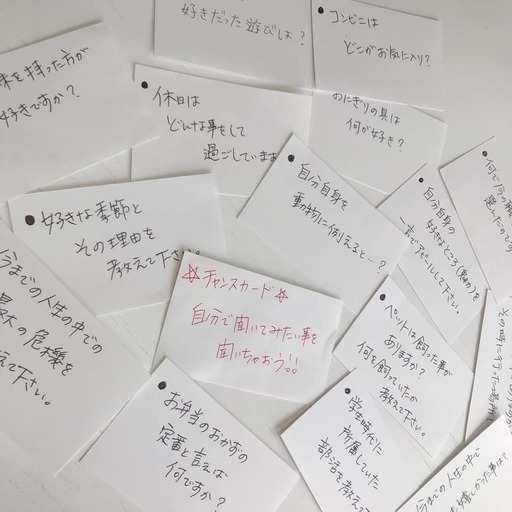 好きだった遊びは？
コンビニは
どこがお気に入り？
味を持った方が
好きですか？
休日は
どんな事をして
過ごしていますか
おにぎりの具は
何が好き？
自分自身を
動物に例えると…？
自分自身の
好きなところ(魅力)を
一言でアピールして下さい。
好きな季節と
その理由を
教えて下さい
☆チャンスカード☆
自分で聞いてみたい事を
聞いちゃおう!!
今までの人生の中での
最大の危機を
えて下さい。
ペットは飼った事が
ありますか？
何を飼っていたか
教えて下さい。
お弁当のおかずの
定番と言えば
何ですか？
学生時代に
所属していた
部活を教えて
今までの人生の中で